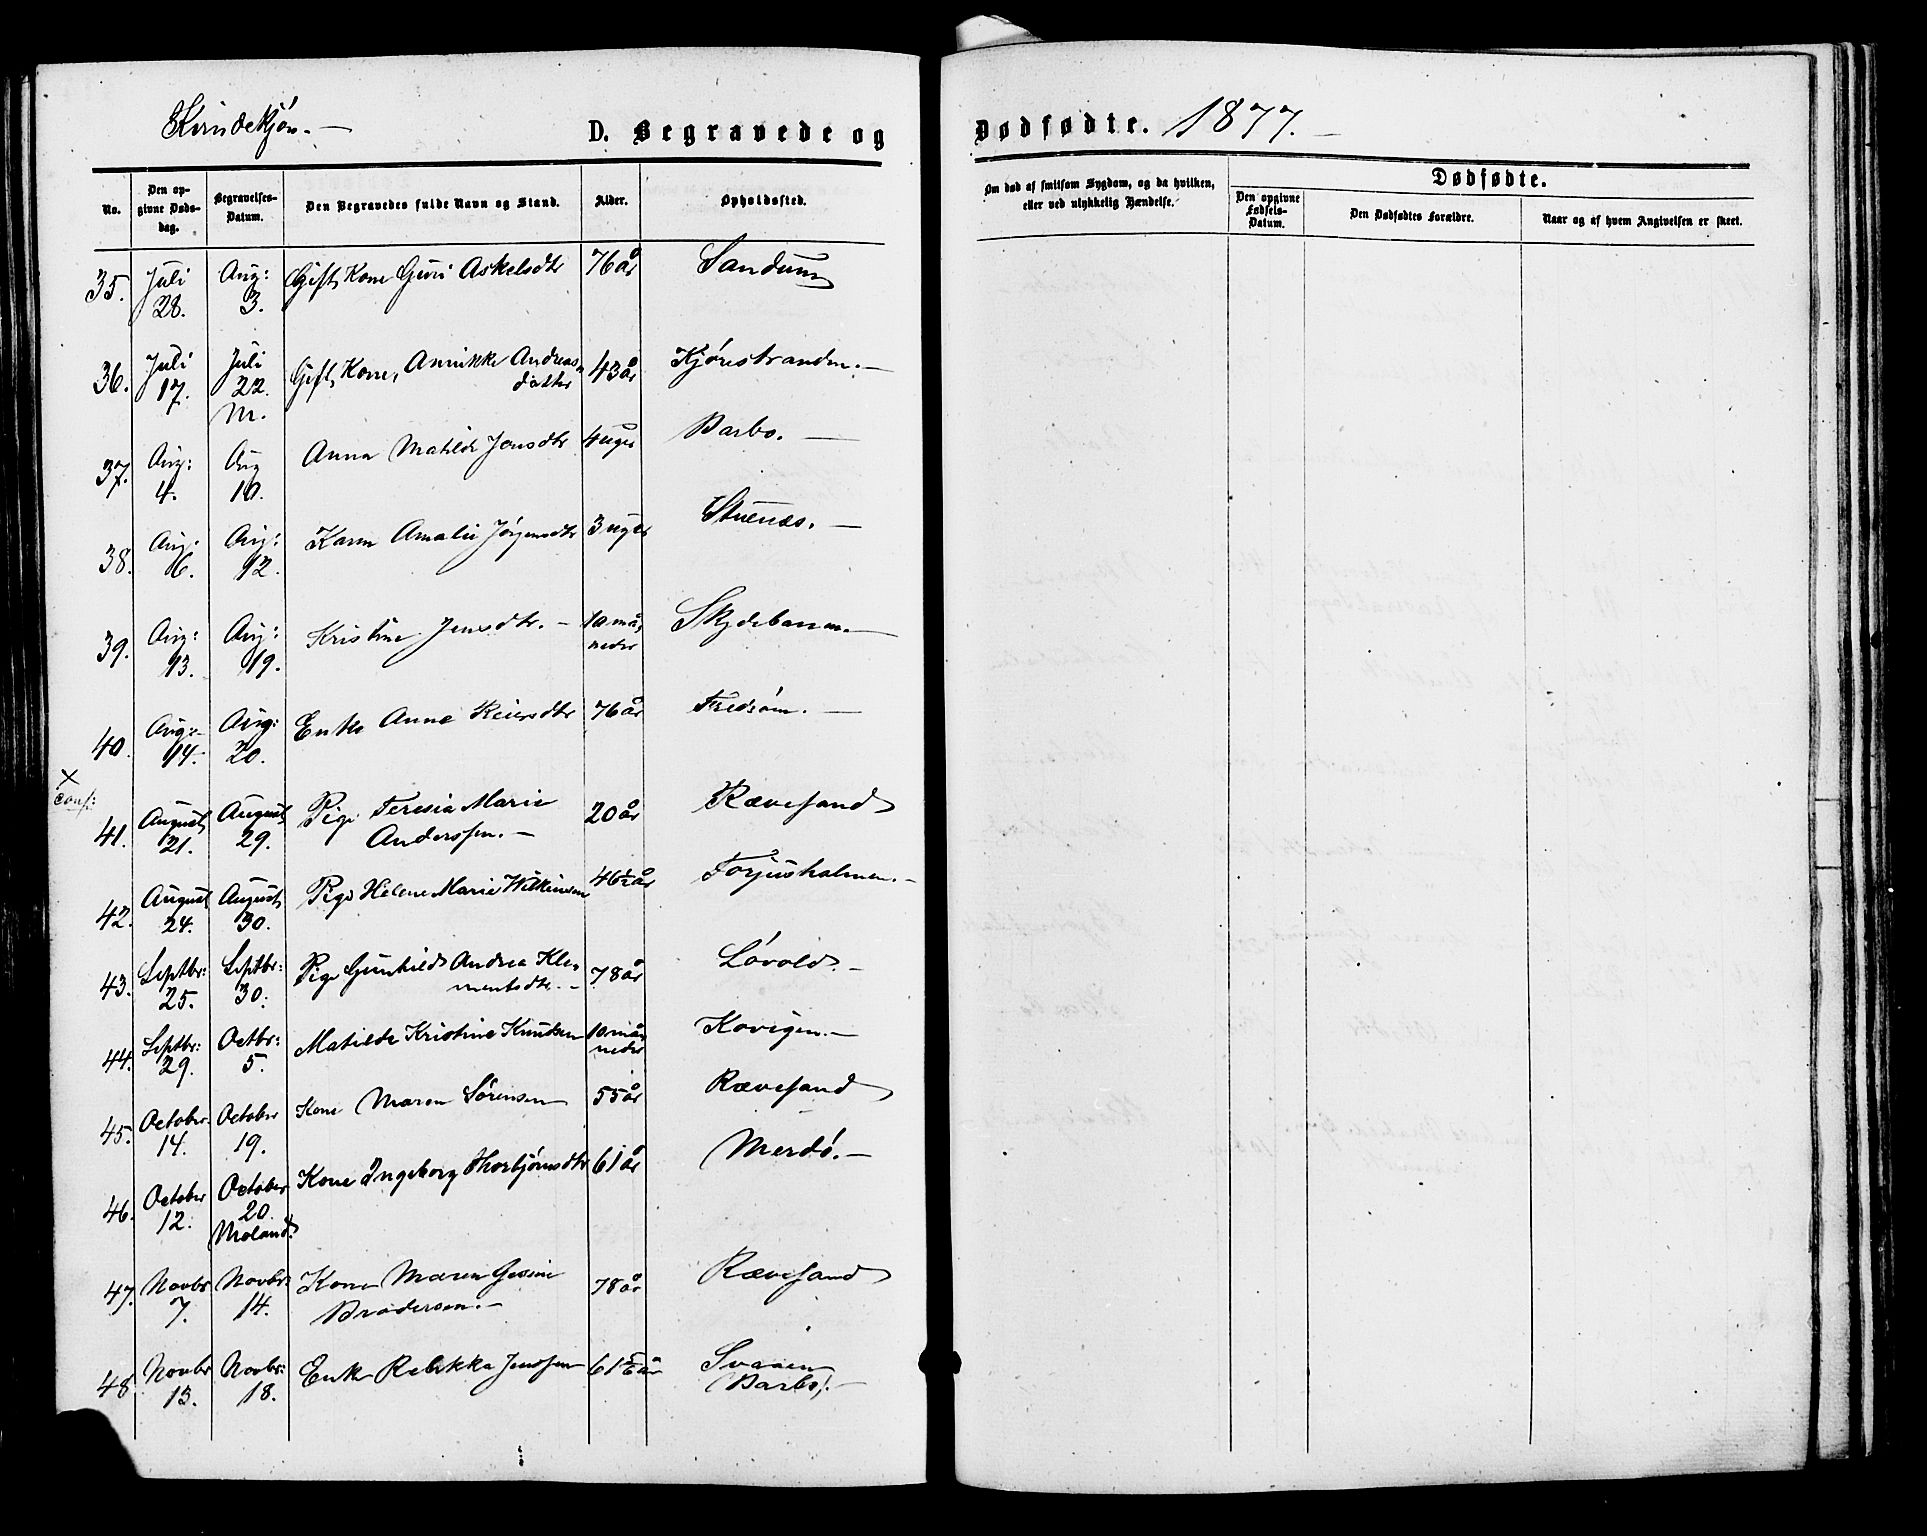 Kvindekjøn. —
D. Begravede og
Dødfødte. 1877. —
No.
Den opgivne Dødsdag.
Begravelses-Datum.
Den Begravedes fulde Navn og Stand.
Alder.
Opholdssted.
Om død af smitsom Sygdom, og da hvilken, eller ved ulykkelig Hændelse.
Dødfødte.
Den opgivne Fødsels-Datum.
Den Dødfødtes Forældre.
Naar og af hvem Angivelsen er skeet.
35. Juli 28. Aug: 3. Gift Kone Guri Askelsdtr 76 år Sandum
36. Juli 17. Juli 22. Gift Kone, Annikke Andreasdatter 43 år Kjørestranden. —
37. Aug: 4. Aug 10. Anna Matilde Jensdtr 4 uger Barbo. —
38. Aug: 6. Aug: 12. Karen Amalie Jørgensdtr 3 uger Stuenæs. —
39. Aug: 13. Aug: 19. Kristine Jensdtr. — 10 måneder Skydebanen. —
40. Aug: 14. Aug: 20. Enke Anne Reiersdtr 76 år
× conf:
41. August 21. August 29. Pige Teresia Marie Anderssen. — 20 år Rævesand
42. August 24. August 30. Pige Helene Marie Wilkinsen 46½ år Torjusholmen. —
43. Septbr: 25. Septbr: 30: Pige Gunhild Andrea Klementsdtr. — 78 år Løvold. —
44. Septbr: 29. Octbr: 5. Matilde Kristine Knutsen 10 måneder Kovigen. —
45. October 14. October 19. Kone Maren Sørensen 55 år Rævesand
46. October 12. October 20. Moland: Kone Ingeborg Thorbjørnsdtr 61 år Merdø. —
47. Novbr 7. Novbr: 14. Kone Maren Gesine Brodersen. — 78 år Rævesand
48. Novbr 13. Novbr: 18. Enke Rebekka Jenssen Barbo. —